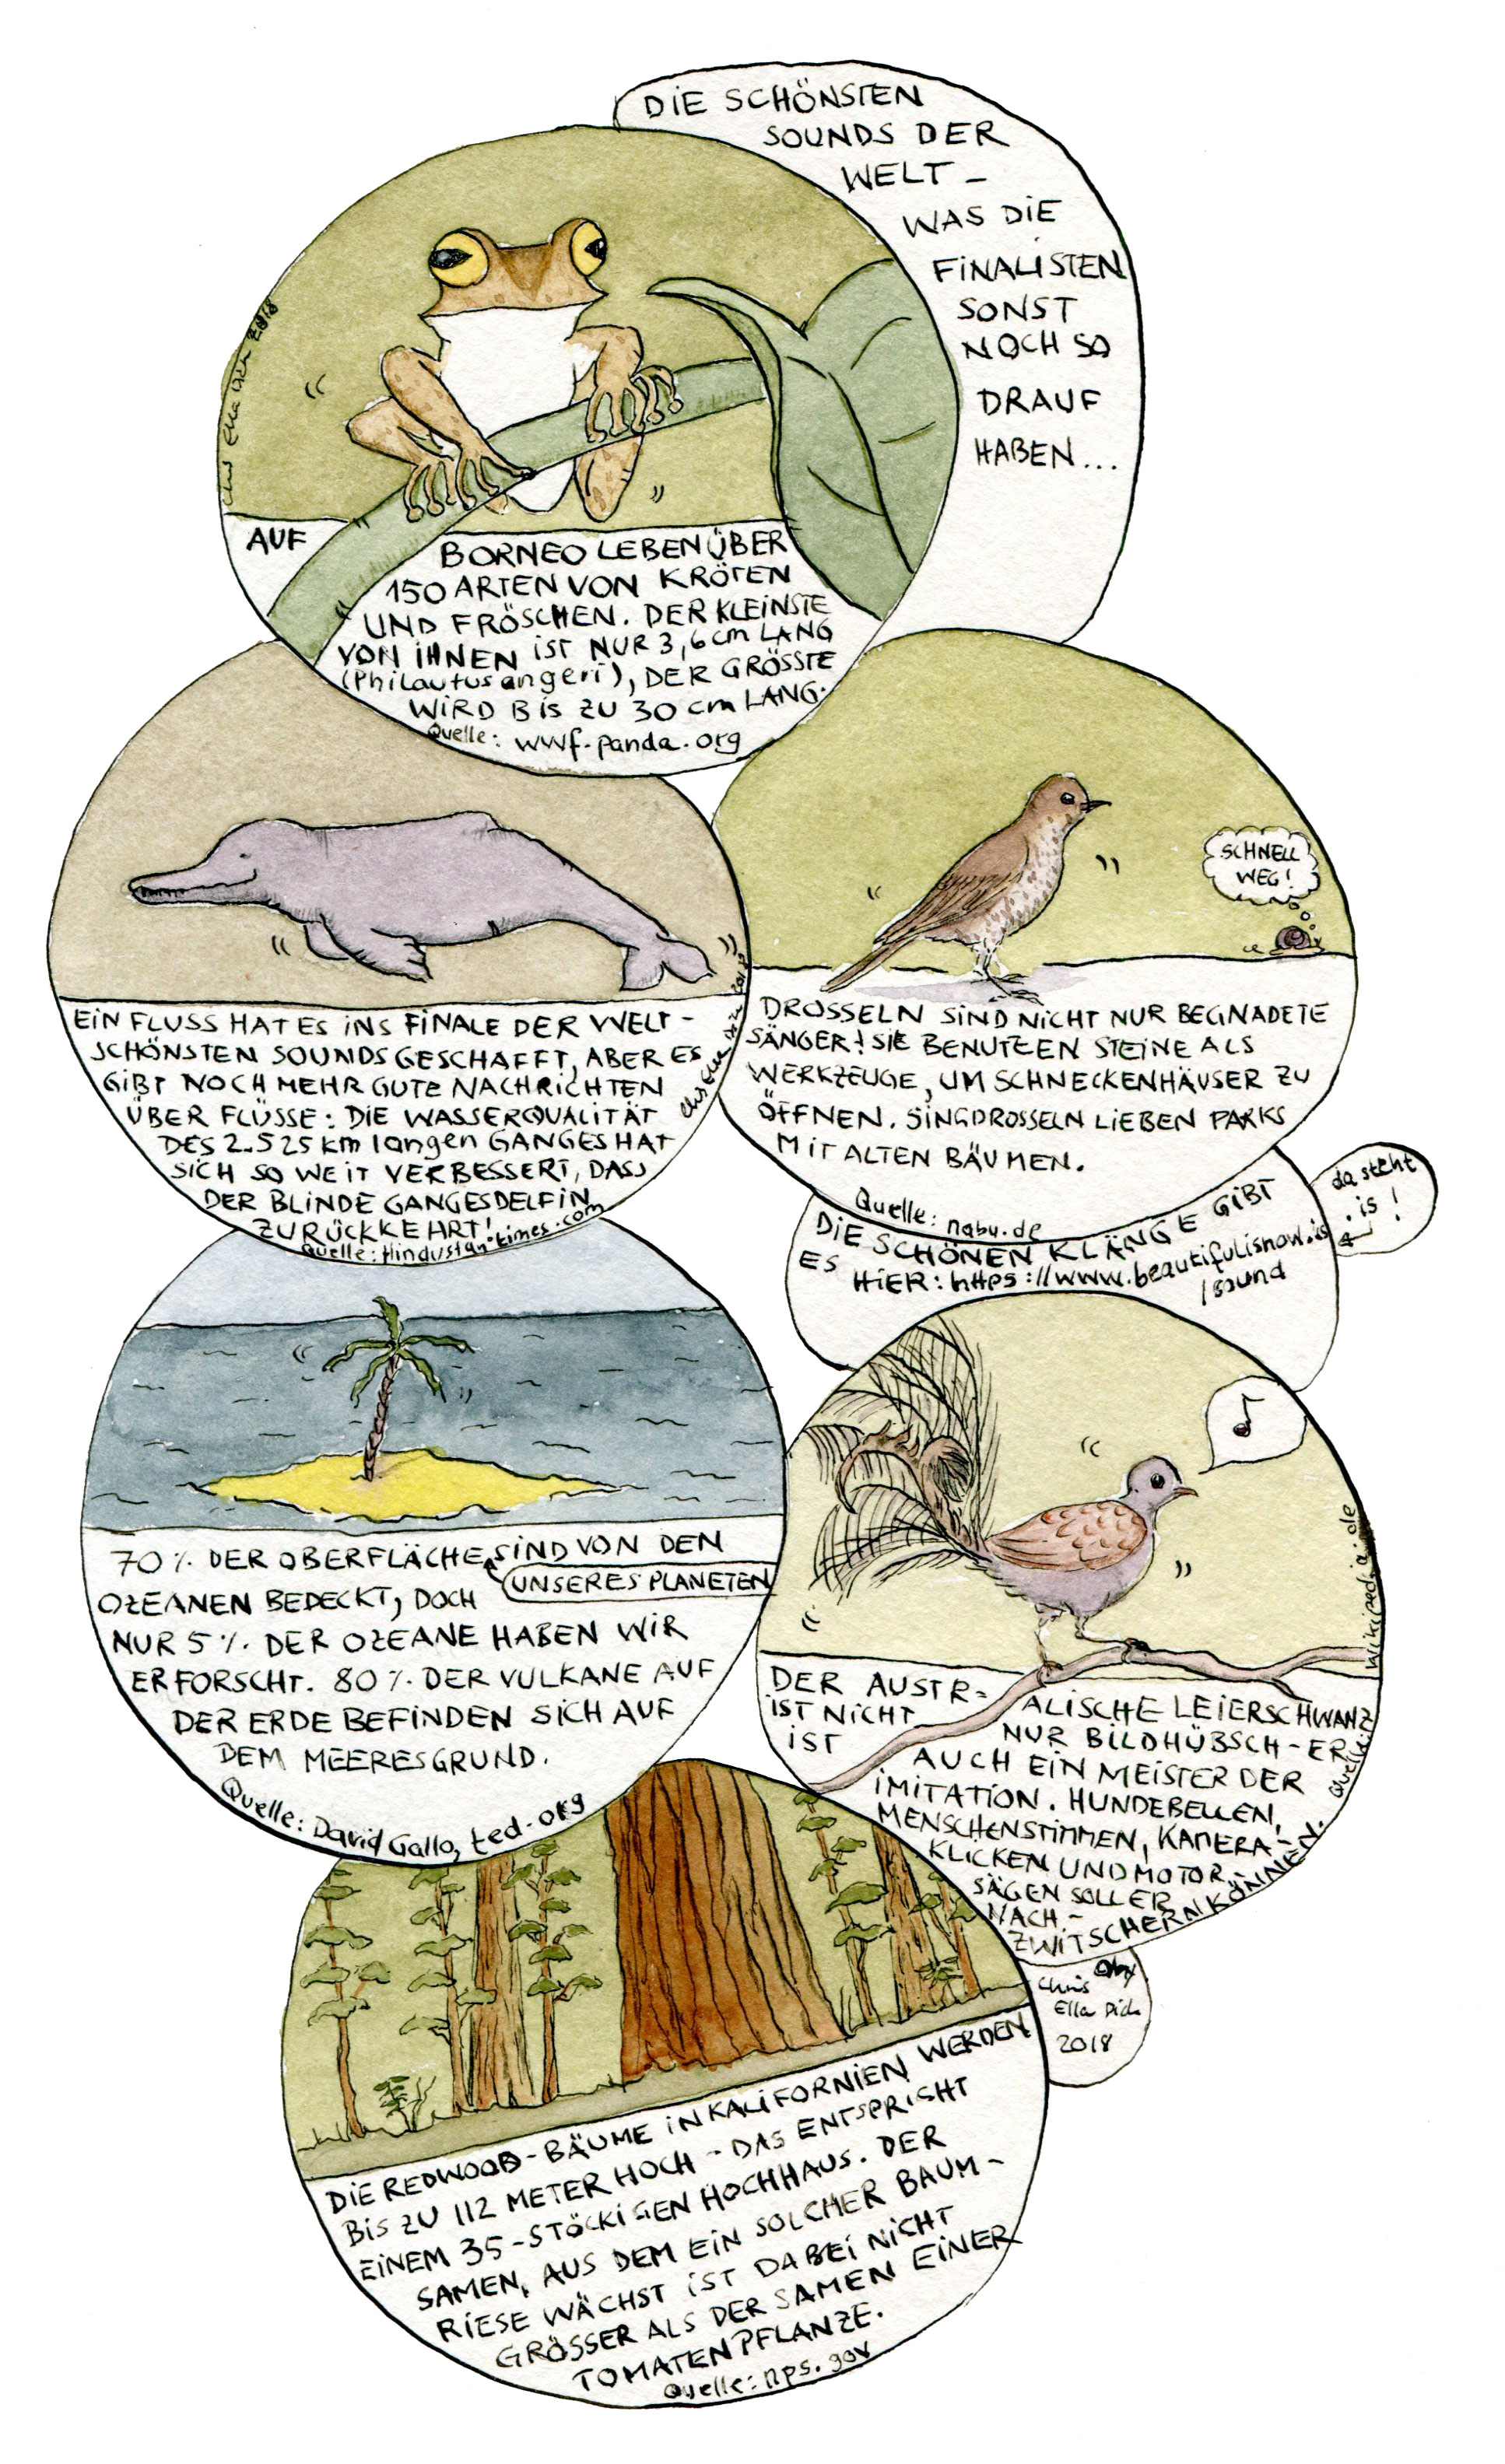 DIE SCHÖNSTEN
SOUNDS DER
WELT –
WAS DIE
FINALISTEN
SONST
NOCH SO
DRAUF
HABEN...
2018
AUF BORNEO LEBEN ÜBER
150 ARTEN VON KRÖTEN
UND FRÖSCHEN. DER KLEINSTE
VON IHNEN IST NUR 3,6 cm LANG
(Philautus angeri), DER GRÖSSTE
WIRD BIS ZU 30 cm LANG.
Quelle: wwf.panda.org
EIN FLUSS HAT ES INS FINALE DER WELT-
SCHÖNSTEN SOUNDS GESCHAFFT, ABER ES
GIBT NOCH MEHR GUTE NACHRICHTEN
ÜBER FLÜSSE: DIE WASSERQUALITÄT
DES 2.525 km langen GANGES HAT
SICH SO WEIT VERBESSERT, DASS
DER BLINDE GANGESDELFIN
ZURÜCKKEHRT!
Quelle: Hindustan-times.com
SCHNELL
WEG!
DROSSELN SIND NICHT NUR BEGNADETE
SÄNGER! SIE BENUTZEN STEINE ALS
WERKZEUGE, UM SCHNECKENHÄUSER ZU
ÖFFNEN. SINGDROSSELN LIEBEN PARKS
MIT ALTEN BÄUMEN.
Quelle: nabu.de
DIE SCHÖNEN KLÄNGE GIBT
ES HIER: https://www.beautifulisnow.is
/sound
da steht
.is!
70% DER OBERFLÄCHE SIND VON DEN
UNSERES PLANETEN
OZEANEN BEDECKT, DOCH
NUR 5% DER OZEANE HABEN WIR
ERFORSCHT. 80% DER VULKANE AUF
DER ERDE BEFINDEN SICH AUF
DEM MEERESGRUND.
Quelle: David Gallo, ted.org
DER AUSTR-ALISCHE LEIERSCHWANZ
IST NICHT NUR BILDHÜBSCH – ER
IST AUCH EIN MEISTER DER
IMITATION. HUNDEBELLEN,
MENSCHENSTIMMEN, KAMERA-
KLICKEN UND MOTOR-
SÄGEN SOLL ER
NACH-
ZWITSCHERN KÖNNEN.
Quelle: Wikipedia.de
Chris
Ella Dick
2018
DIE REDWOOD-BÄUME IN KALIFORNIEN WERDEN
BIS ZU 112 METER HOCH – DAS ENTSPRICHT
EINEM 35-STÖCKIGEN HOCHHAUS. DER
SAMEN, AUS DEM EIN SOLCHER BAUM-
RIESE WÄCHST IST DABEI NICHT
GRÖSSER ALS DER SAMEN EINER
TOMATENPFLANZE.
Quelle: nps.gov